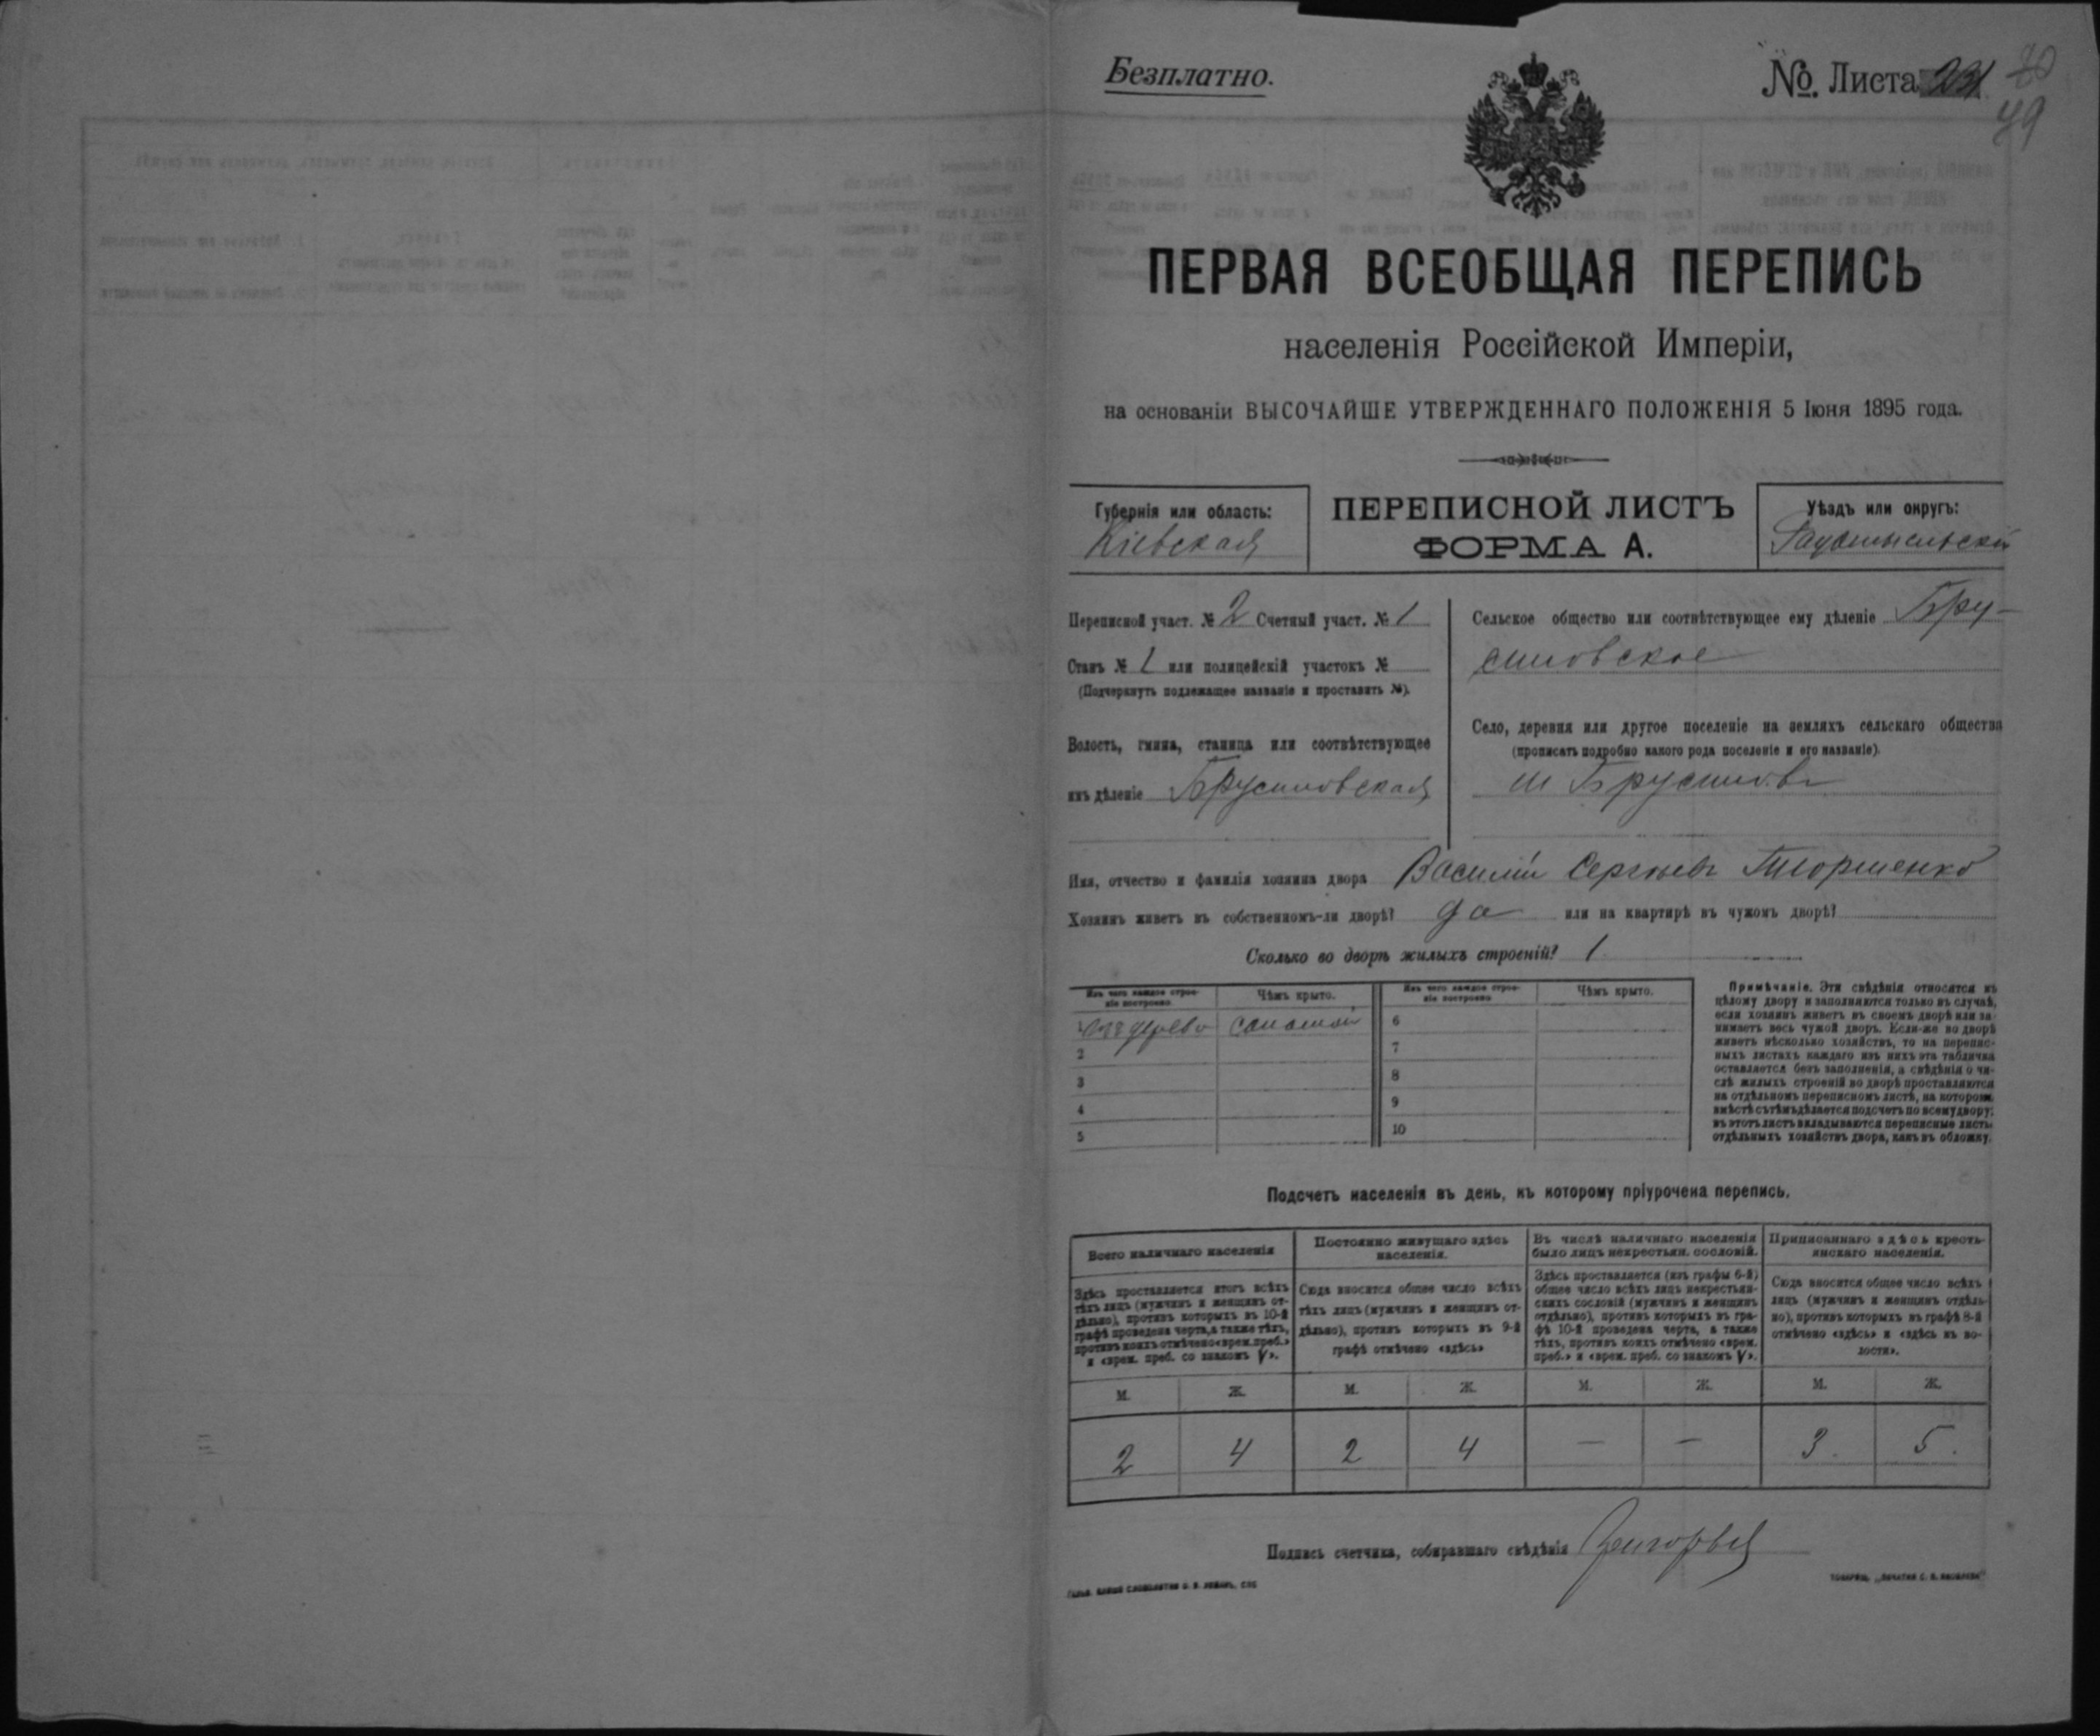 Безплатно.
№. Листа 49
ПЕРВАЯ ВСЕОБЩАЯ ПЕРЕПИСЬ
населенія Россійской Имперіи,
на основаніи ВЫСОЧАЙШЕ УТВЕРЖДЕННАГО ПОЛОЖЕНІЯ 5 Іюня 1895 года.
Губернія или область:
Кіевская
ПЕРЕПИСНОЙ ЛИСТЪ
ФОРМА А.
Уѣздъ или округъ:
Радомысльскій
Переписной участ. № 2 Счетный участ. № 1
Станъ № 1 или полицейскій участокъ №
(Подчеркнуть подлежащее названіе и проставить №).
Волость, гмина, станица или соотвѣтствующее
имъ дѣленіе Брусиловская
Сельское общество или соотвѣтствующее ему дѣленіе Бру-
силовское
Село, деревня или другое поселеніе на земляхъ сельскаго общества
(прописать подробно какого рода поселеніе и его названіе).
м Брусиловъ
Имя, отчество и фамилія хозяина двора Василій Сергѣевъ
Хозяинъ живетъ въ собственномъ-ли дворѣ? да или на квартирѣ въ чужомъ дворѣ?
Сколько во дворѣ жилыхъ строеній? 1
Изъ чего каждое строе-
ніе построено.
Чѣмъ крыто.
Изъ чего каждое строе-
ніе построено
Чѣмъ крыто.
1 дерево соломой 6
2 7
3 8
4 9
5 10
Примѣчаніе. Эти свѣдѣнія относятся къ
цѣлому двору и заполняются только въ случаѣ,
если хозяинъ живетъ въ своемъ дворѣ или за-
нимаетъ весь чужой дворъ. Если-же во дворѣ
живетъ нѣсколько хозяйствъ, то на перепис-
ныхъ листахъ каждаго изъ нихъ эта табличка
оставляется безъ заполненія, а свѣдѣнія о чи-
слѣ жилыхъ строеній во дворѣ проставляются
на отдѣльномъ переписномъ листѣ, на которомъ
вмѣстѣ съ тѣмъ дѣлается подсчетъ по всему двору;
въ этотъ листъ вкладываются переписные листы
отдѣльныхъ хозяйствъ двора, какъ въ обложку.
Подсчетъ населенія въ день, къ которому пріурочена перепись.
Всего наличнаго населенія
Здѣсь проставляется итогъ всѣхъ
тѣхъ лицъ (мужчинъ и женщинъ от-
дѣльно), противъ которыхъ въ 10-й
графѣ проведена черта, а также тѣхъ,
противъ коихъ отмѣчено «врем. преб.»
и «врем. преб. со знакомъ V».
Постоянно живущаго здѣсь
населенія.
Сюда вносится общее число всѣхъ
тѣхъ лицъ (мужчинъ и женщинъ от-
дѣльно), противъ которыхъ въ 9-й
графѣ отмѣчено «здѣсь»
Въ числѣ наличнаго населенія
было лицъ некрестьян. сословій.
Здѣсь проставляется (изъ графы 6-й)
общее число всѣхъ лицъ некрестьян-
скихъ сословій (мужчинъ и женщинъ
отдѣльно), противъ которыхъ въ гра-
фѣ 10-й проведена черта, а также
тѣхъ, противъ коихъ отмѣчено «врем.
преб.» и «врем. преб. со знакомъ V».
Приписаннаго здѣсь кресть-
янскаго населенія.
Сюда вносится общее число всѣхъ
лицъ (мужчинъ и женщинъ отдѣль-
но), противъ которыхъ въ графѣ 8-й
отмѣчено «здѣсь» и «здѣсь въ во-
лости».
М. Ж. М. Ж. М. Ж. М. Ж.
2 4 2 4 — — 3. 5.
Подпись счетчика, собиравшаго свѣдѣнія